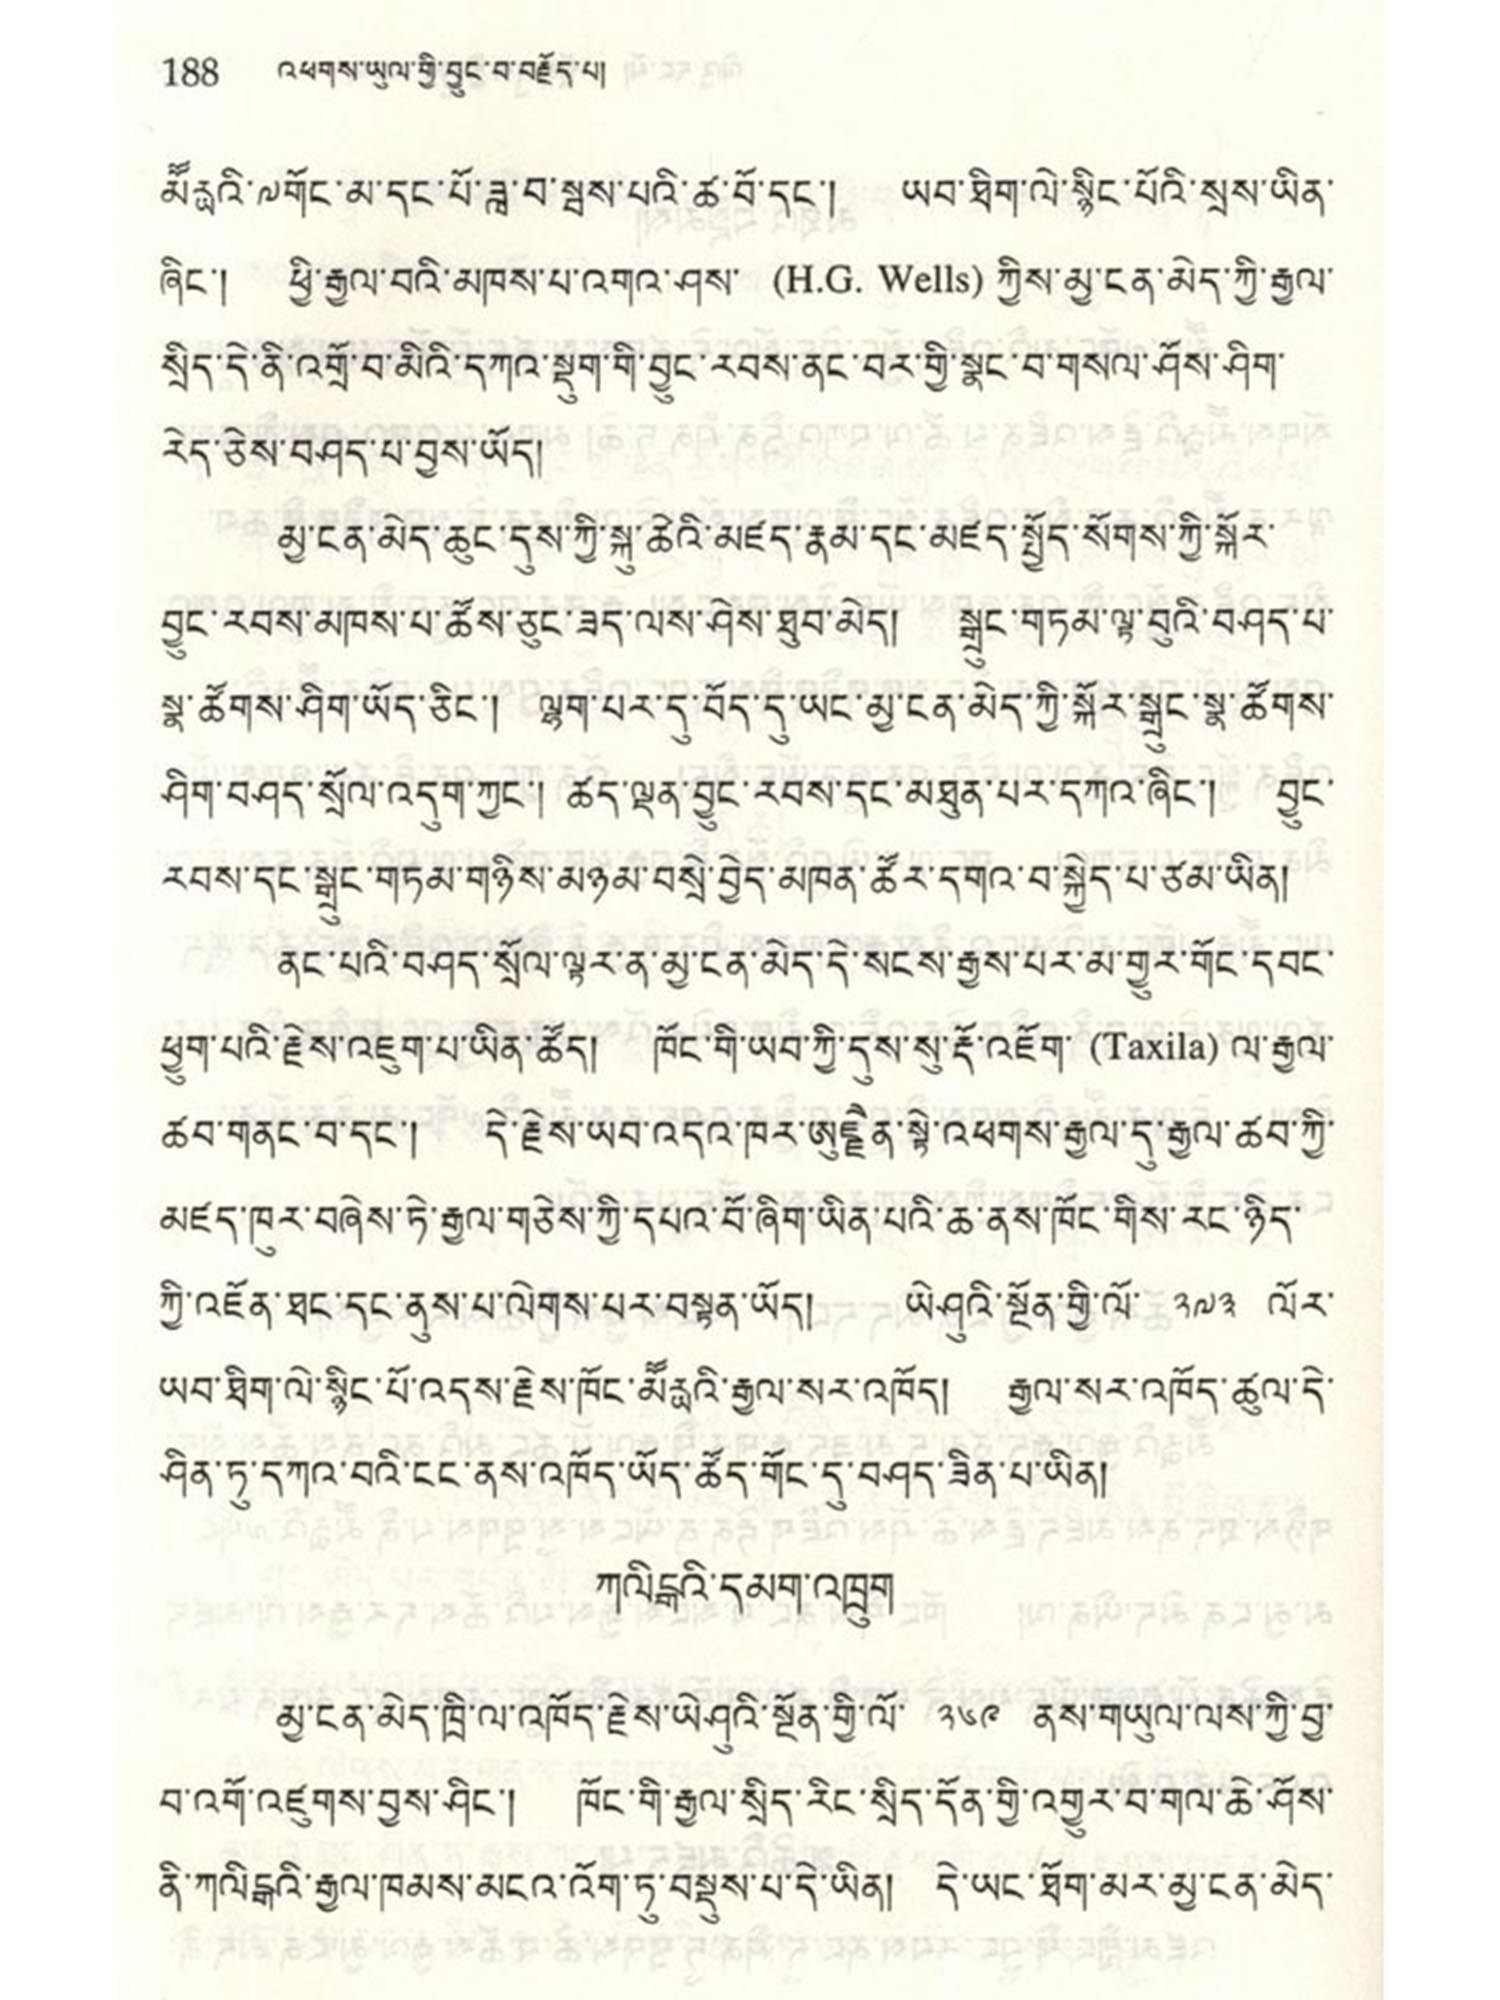 188 འཕགས་ཡུལ་གྱི་བྱུང་བ་བརྗོད་པ།
མཽརྱའི་༧གོང་མ་དང་པོ་ཟླ་བ་སྦས་པའི་ཚ་བོ་དང་། ཡབ་ཐིག་ལེ་སྙིང་པོའི་སྲས་ཡིན་
ཞིང་། ཕྱི་རྒྱལ་བའི་མཁས་པ་འགའ་ཤས་ (H.G. Wells) ཀྱིས་མྱ་ངན་མེད་ཀྱི་རྒྱལ་
སྲིད་དེ་ནི་འགྲོ་བ་མིའི་དཀའ་སྡུག་གི་བྱུང་རབས་ནང་བར་གྱི་སྣང་བ་གསལ་ཤོས་ཤིག་
རེད་ཅེས་བཤད་པ་བྱས་ཡོད།
མྱ་ངན་མེད་ཆུང་དུས་ཀྱི་སྐུ་ཚེའི་མཛད་རྣམ་དང་མཛད་སྤྱོད་སོགས་ཀྱི་སྐོར་
བྱུང་རབས་མཁས་པ་ཚོས་ཅུང་ཟད་ལས་ཤེས་ཐུབ་མེད། སྒྲུང་གཏམ་ལྟ་བུའི་བཤད་པ་
སྣ་ཚོགས་ཤིག་ཡོད་ཅིང་། ལྷག་པར་དུ་བོད་དུ་ཡང་མྱ་ངན་མེད་ཀྱི་སྐོར་སྒྲུང་སྣ་ཚོགས་
ཤིག་བཤད་སྲོལ་འདུག་ཀྱང་། ཚད་ལྡན་བྱུང་རབས་དང་མཐུན་པར་དཀའ་ཞིང་། བྱུང་
རབས་དང་སྒྲུང་གཏམ་གཉིས་མཉམ་བསྲེ་བྱེད་མཁན་ཚོར་དགའ་བ་སྐྱེད་པ་ཙམ་ཡིན།
ནང་པའི་བཤད་སྲོལ་ལྟར་ན་མྱ་ངན་མེད་དེ་སངས་རྒྱས་པར་མ་གྱུར་གོང་དབང་
ཕྱུག་པའི་རྗེས་འཇུག་པ་ཡིན་ཚོད། ཁོང་གི་ཡབ་ཀྱི་དུས་སུ་རྡོ་འཇོག་ (Taxila) ལ་རྒྱལ་
ཚབ་གནང་བ་དང་། དེ་རྗེས་ཡབ་འདའ་ཁར་ཨུཛྫཻན་སྟེ་འཕགས་རྒྱལ་དུ་རྒྱལ་ཚབ་ཀྱི་
མཛད་ཁུར་བཞེས་ཏེ་རྒྱལ་གཅེས་ཀྱི་དཔའ་བོ་ཞིག་ཡིན་པའི་ཆ་ནས་ཁོང་གིས་རང་ཉིད་
ཀྱི་འཇོན་ཐང་དང་ནུས་པ་ལེགས་པར་བསྟན་ཡོད། ཡེ་ཤུའི་སྔོན་གྱི་ལོ་ ༢༧༣ ལོར་
ཡབ་ཐིག་ལེ་སྙིང་པོ་འདས་རྗེས་ཁོང་མཽརྱའི་རྒྱལ་སར་འཁོད། རྒྱལ་སར་འཁོད་ཚུལ་དེ་
ཤིན་ཏུ་དཀའ་བའི་ངང་ནས་འཁོད་ཡོད་ཚོད་གོང་དུ་བཤད་ཟིན་པ་ཡིན།
ཀལིངྒའི་དམག་འཁྲུག
མྱ་ངན་མེད་ཁྲི་ལ་འཁོད་རྗེས་ཡེ་ཤུའི་སྔོན་གྱི་ལོ་ ༢༦༩ ནས་གཡུལ་ལས་ཀྱི་བྱ་
བ་འགོ་འཛུགས་བྱས་ཤིང་། ཁོང་གི་རྒྱལ་སྲིད་རིང་སྲིད་དོན་གྱི་འགྱུར་བ་གལ་ཆེ་ཤོས་
ནི་ཀལིངྒའི་རྒྱལ་ཁམས་མངའ་འོག་ཏུ་བསྡུས་པ་དེ་ཡིན། དེ་ཡང་ཐོག་མར་མྱ་ངན་མེད་